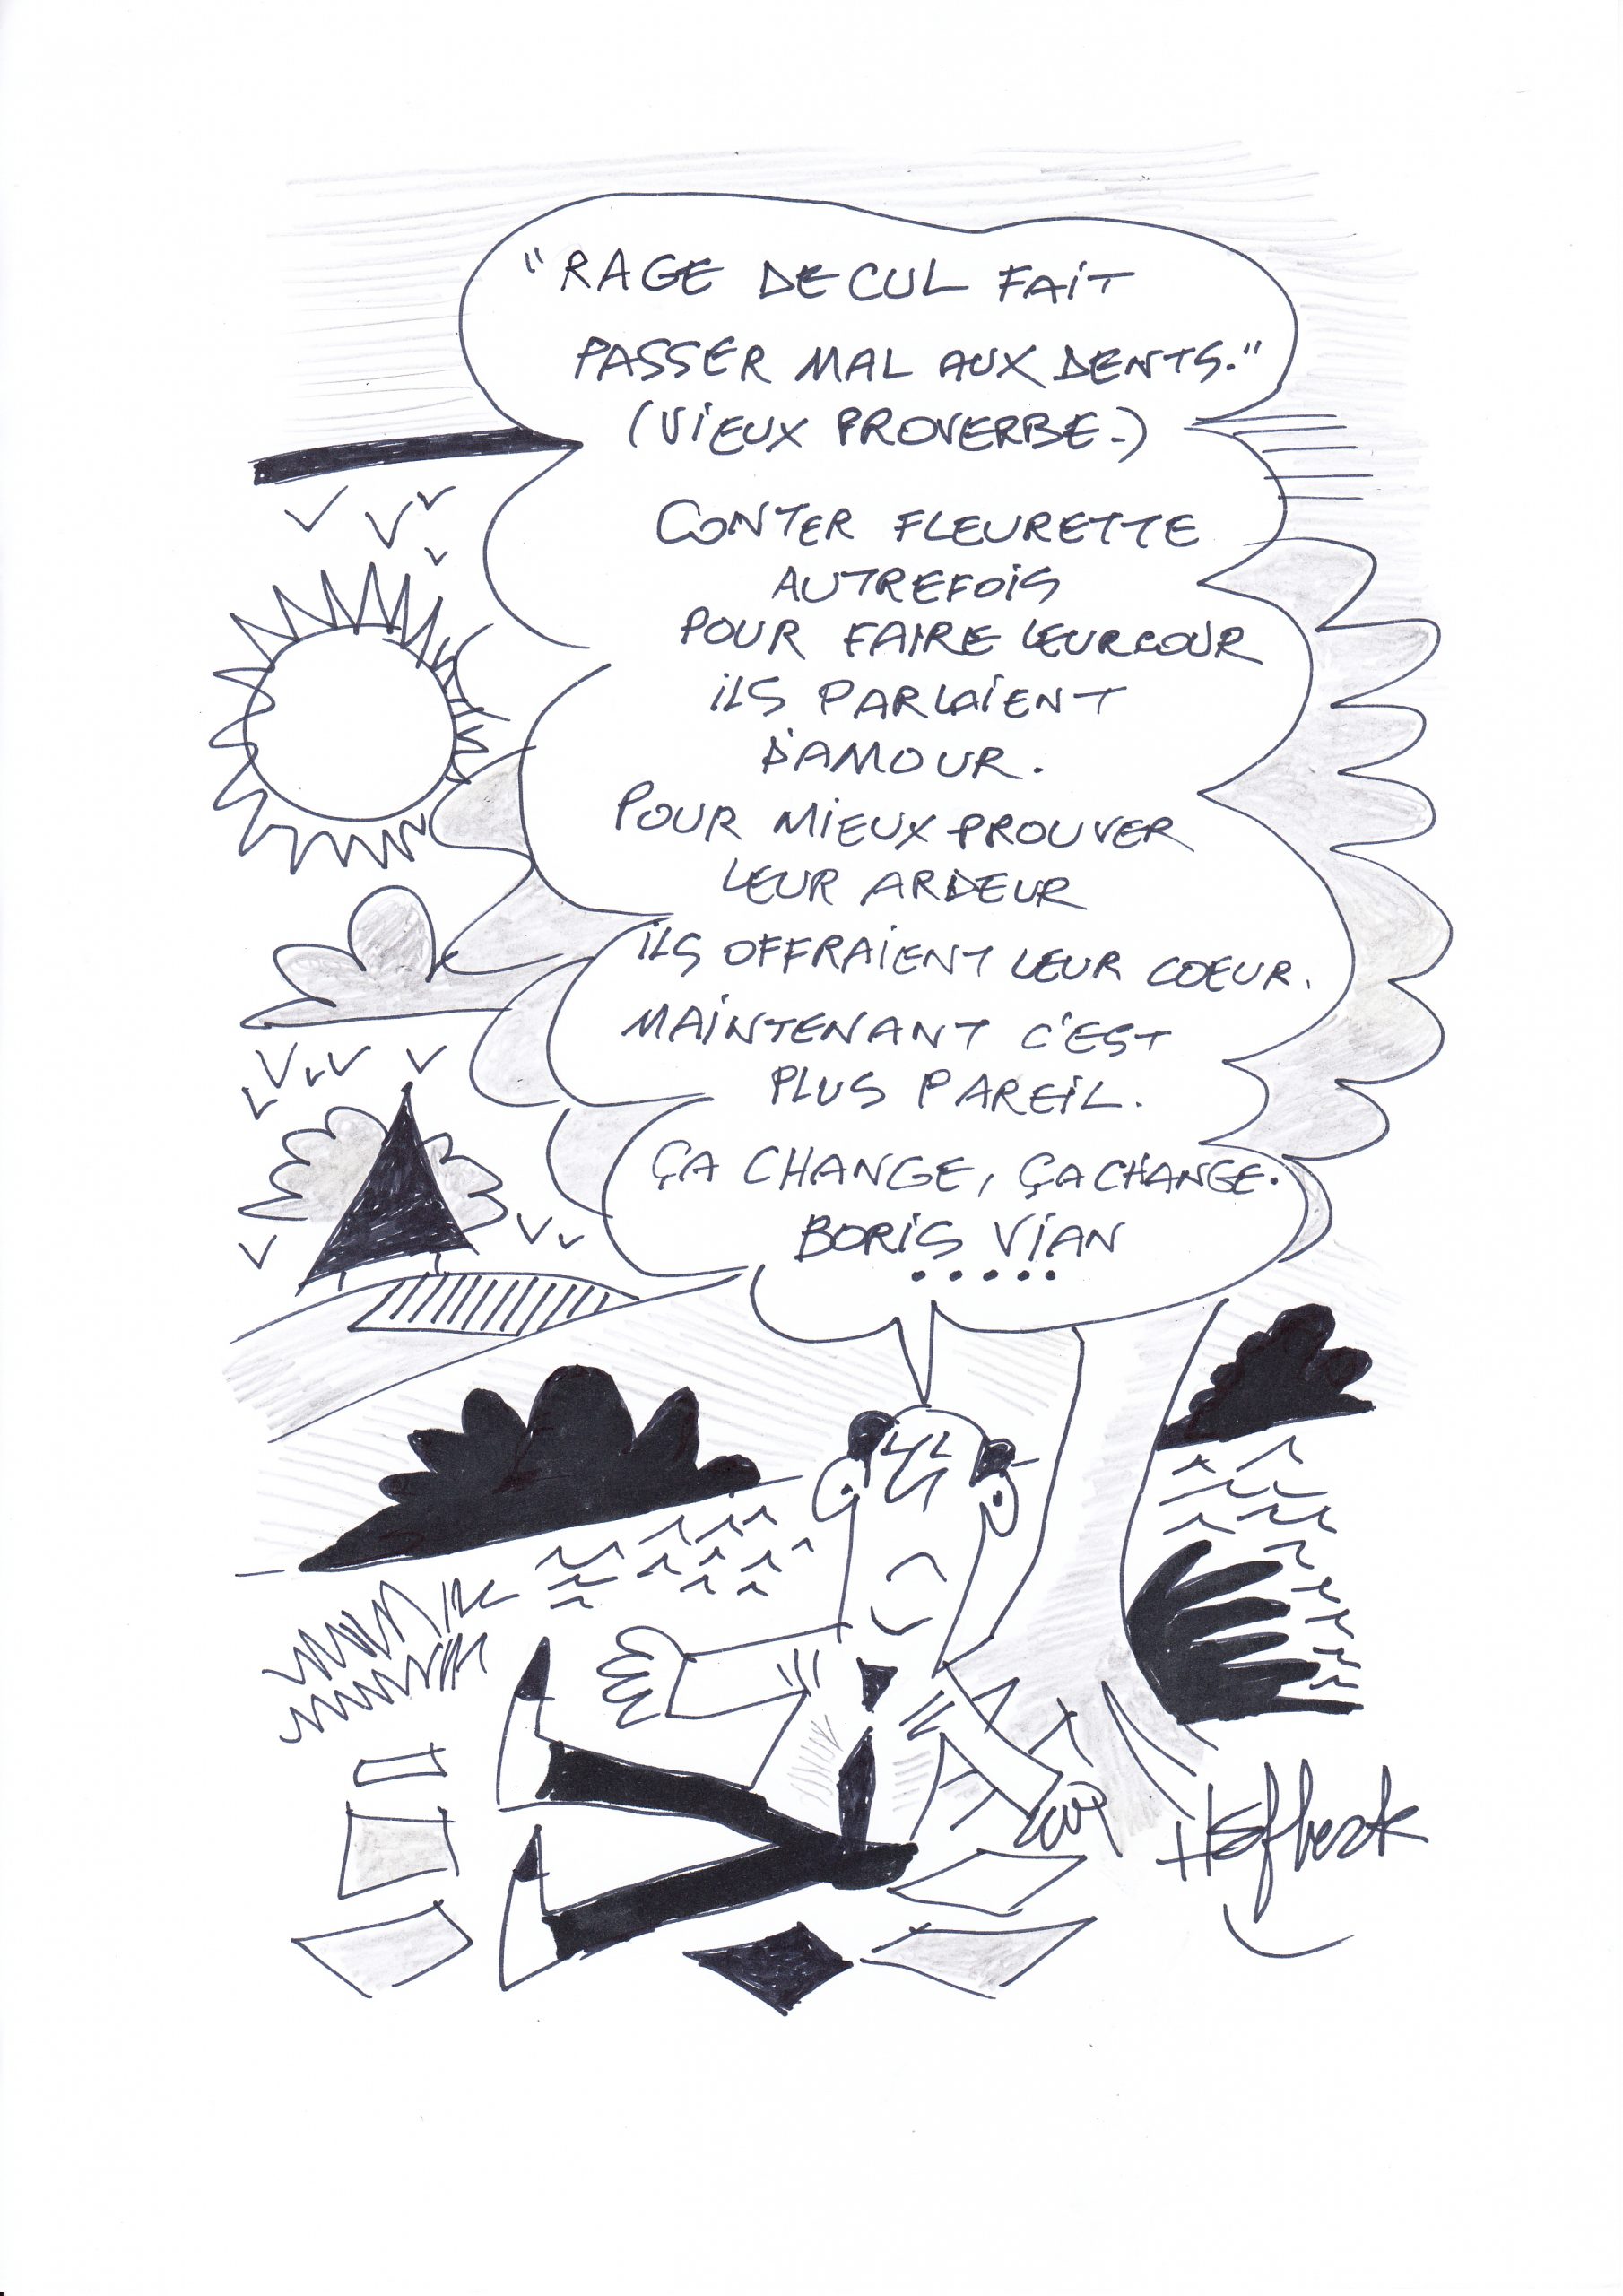 "RAGE DE CUL FAIT
PASSER MAL AUX DENTS."
(VIEUX PROVERBE.)
CONTER FLEURETTE
AUTREFOIS
POUR FAIRE LEUR COUR
ILS PARLAIENT
D'AMOUR.
POUR MIEUX PROUVER
LEUR ARDEUR
ILS OFFRAIENT LEUR COEUR.
MAINTENANT C'EST
PLUS PAREIL.
ÇA CHANGE, ÇA CHANGE.
BORIS VIAN
.....